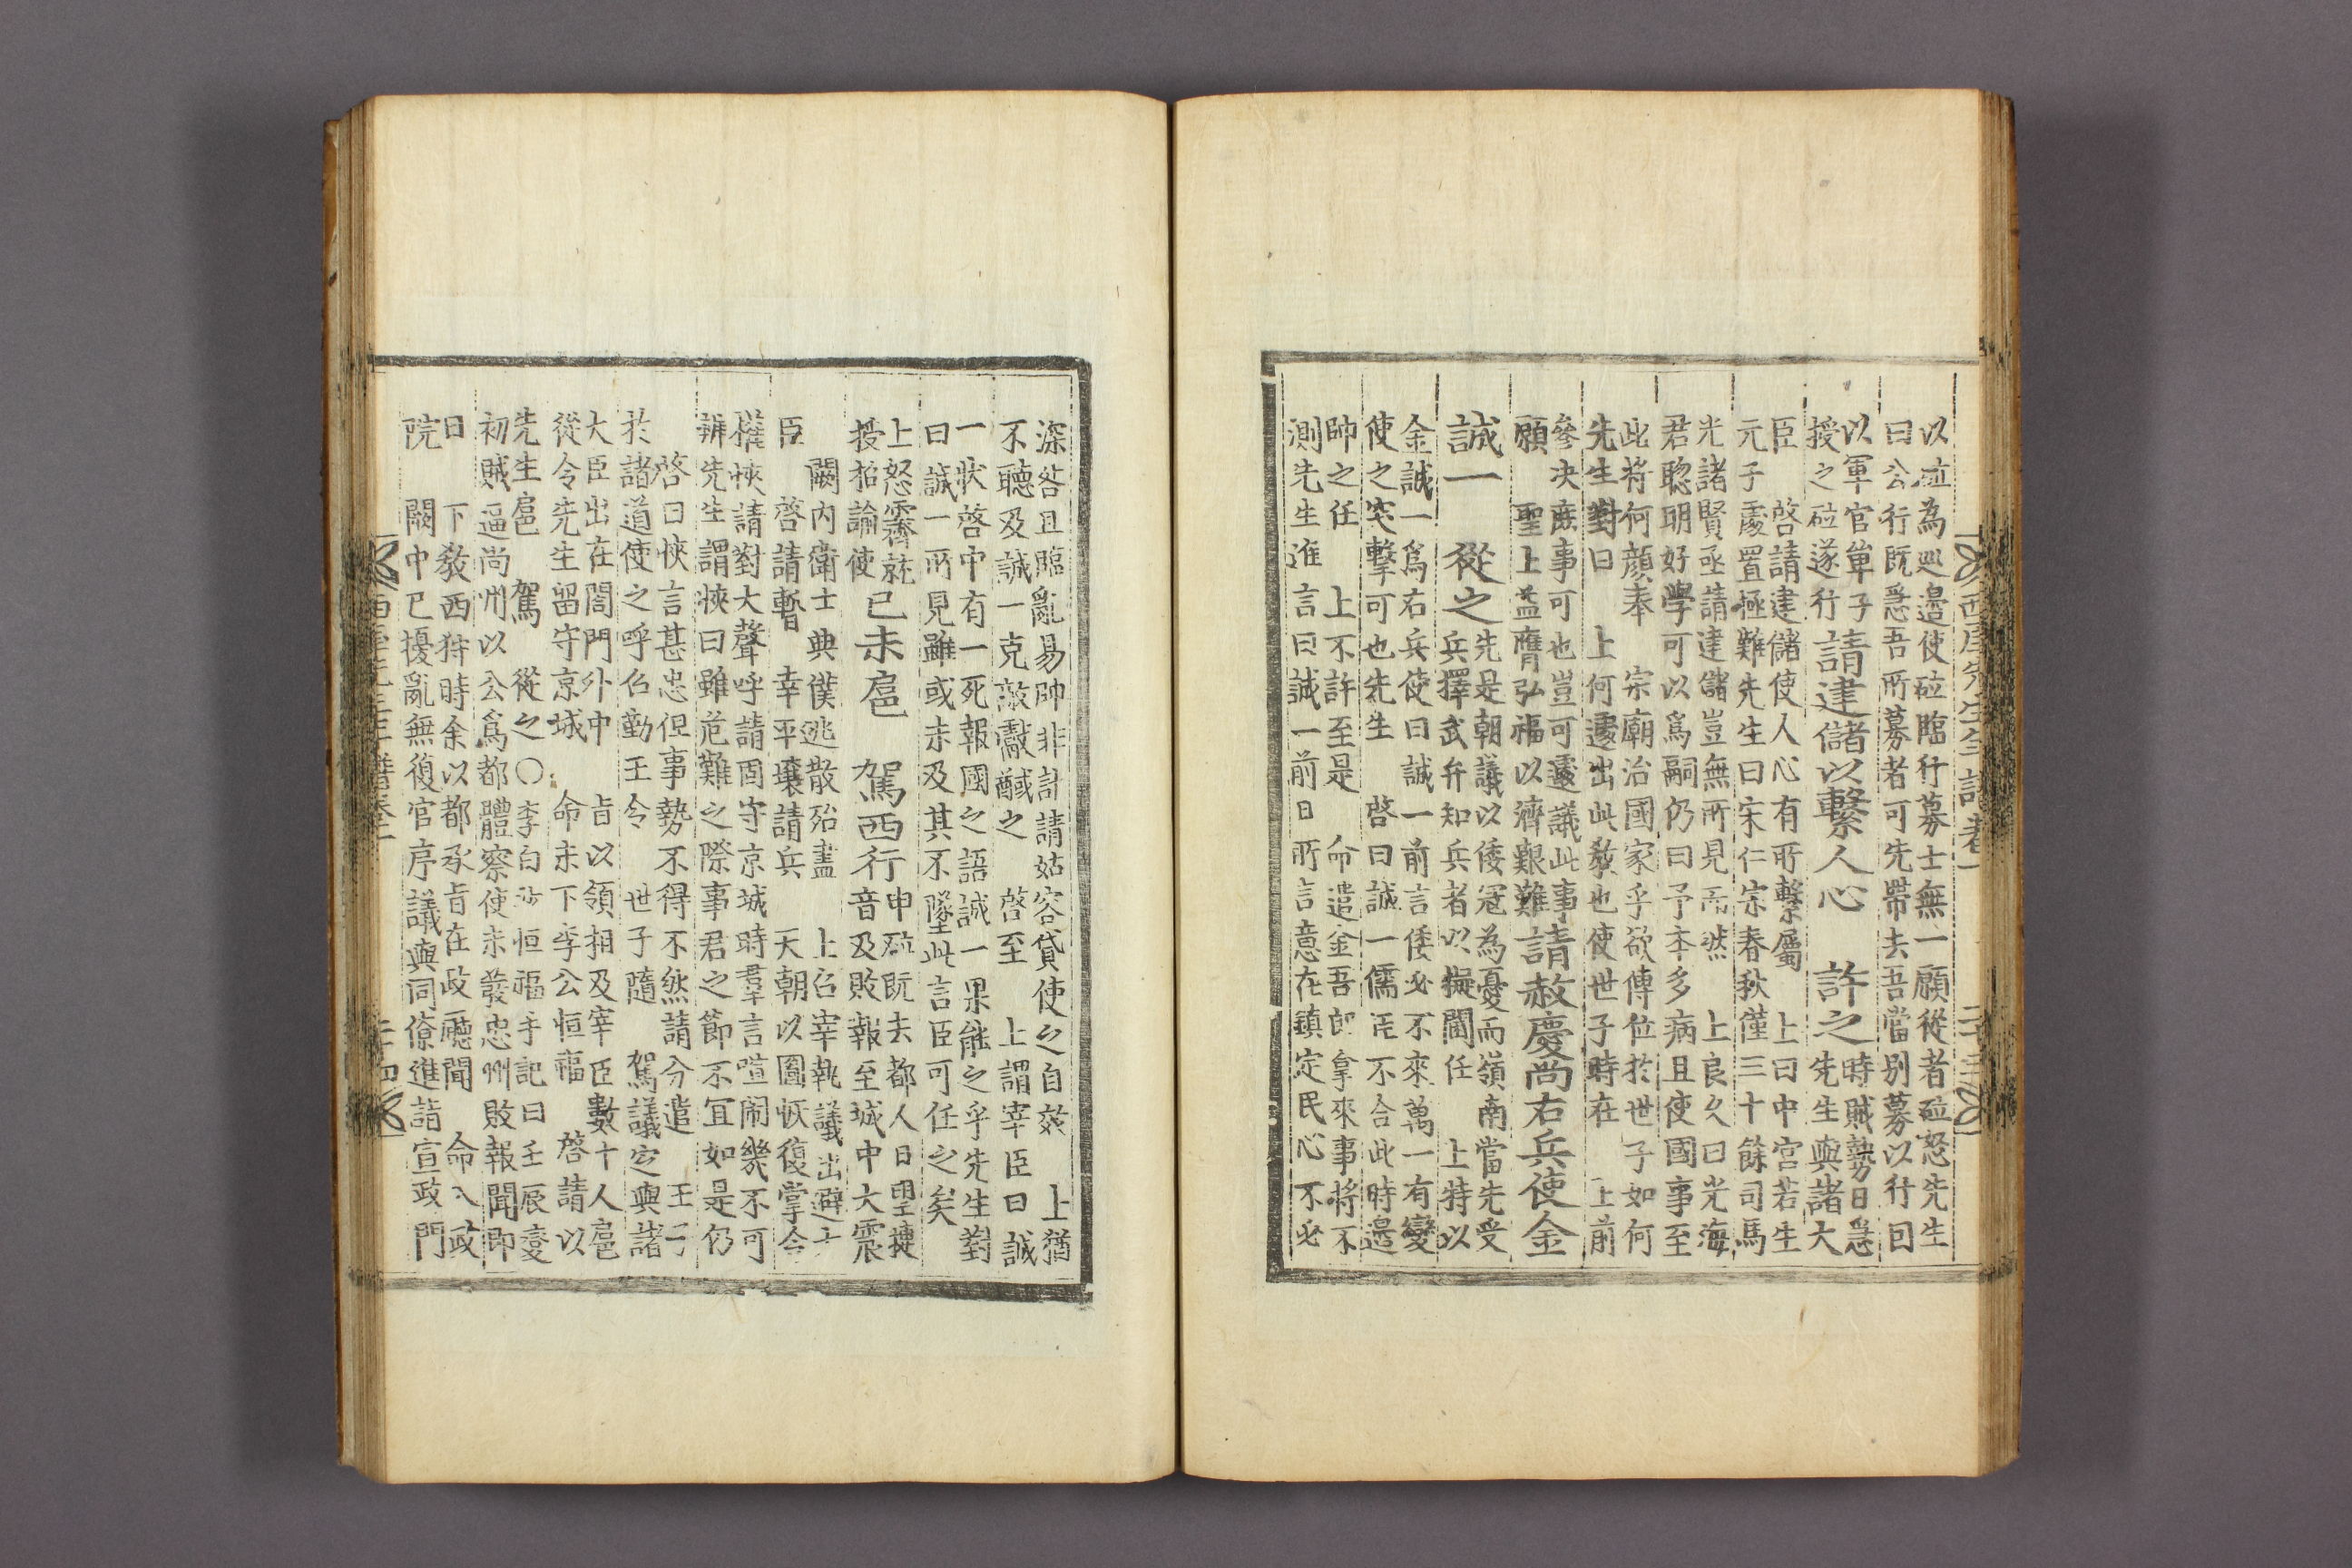 西厓先生年譜卷一 二十三
以砬為巡邊使砬臨行募士無一願從者砬怒先生
曰公行既急吾所募者可先帶去吾當別募以行回
以軍官單子
授之砬遂行
請建儲以繫人心 許之
時賊勢日急
先生與諸大
臣 啓請建儲使人心有所繫屬 上曰中宮若生
元子處置極難先生曰宋仁宗春秋僅三十餘司馬
光諸賢亟請建儲豈無所見而然 上良久曰光海
君聦明好學可以爲嗣仍曰予本多病且使國事至
此將何顔奉 宗廟治國家乎欲傳位於世子如何
先生對曰 上何遽出此敎也使世子時在 上前
參决庶事可也豈可遽議此事
願 聖上益膺弘福以濟艱難
請赦慶尚右兵使金
誠一 從之
先是朝議以倭冦為憂而嶺南當先受
兵擇武弁知兵者以擬閫任 上特以
金誠一爲右兵使曰誠一前言倭必不來萬一有變
使之突擊可也先生 啓曰誠一儒臣不合此時邊
帥之任 上不許至是 命遣金吾郎拿來事將不
測先生進言曰誠一前日所言意在鎮定民心不必
深咎且臨亂易帥非計請姑容貸使之自效 上猶
不聽及誠一克敵獻馘之 啓至 上謂宰臣曰誠
一狀啓中有一死報國之語誠一果能之乎先生對
曰誠一所見雖或未及其不墜此言臣可任之矣
上怒霽就
授招諭使
己未扈 駕西行
申砬既去都人日望捷
音及敗報至城中大震
闕內衛士典僕逃散殆盡 上召宰執議出避大
臣 啓請暫 幸平壤請兵 天朝以圖恢復掌令
權悏請對大聲呼請固守京城時羣言喧鬧幾不可
辨先生謂悏曰雖危難之際事君之節不宜如是仍
啓曰悏言甚忠但事勢不得不然請分遣 王子
於諸道使之呼召勤王令 世子隨 駕議定與諸
大臣出在閤門外中 旨以領相及宰臣數十人扈
從令先生留守京城 命未下李公恒福 啓請以
先生扈 駕 從之○李白沙恒福手記曰壬辰變
初賊逼尚州以公爲都體察使未發忠州敗報聞即
日 下敎西狩時余以都承旨在政廳聞 命入政
院 闕中已擾亂無復官序議與同僚進詣宣政門
西厓先生年譜卷一 二十四